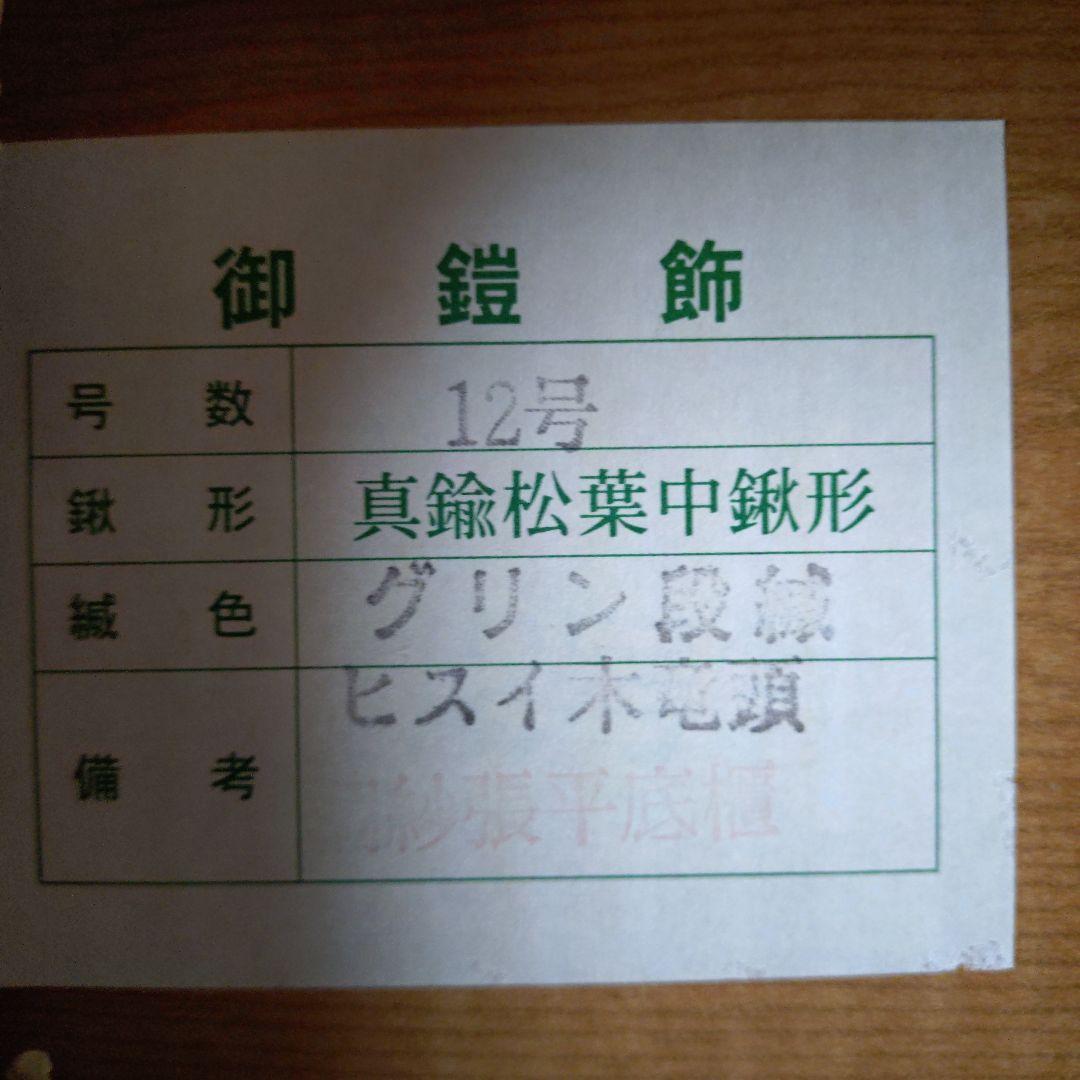 御鎧飾
号数 12号
鍬形 真鍮松葉中鍬形
縅色 グリン段縅
備考 ヒスイ木竜頭
紗張平底櫃